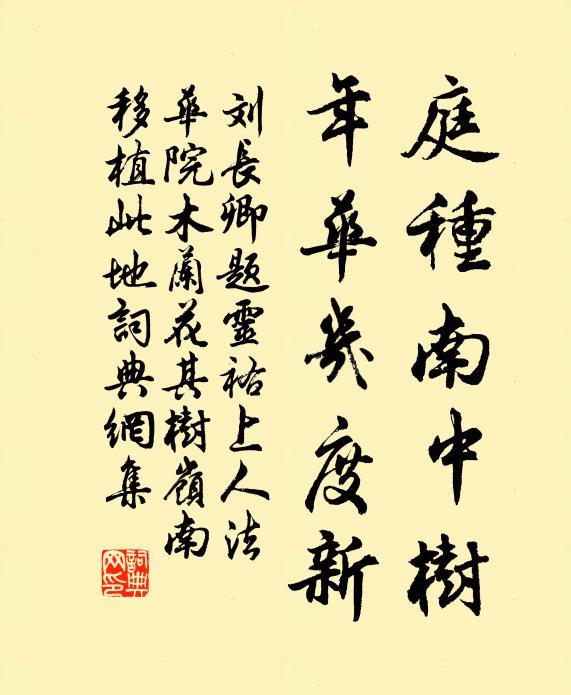 庭種南中樹
年華幾度新
刘長卿題靈裕上人法
華院木蘭花其樹嶺南
移植此地詞典網集
詞典
网印